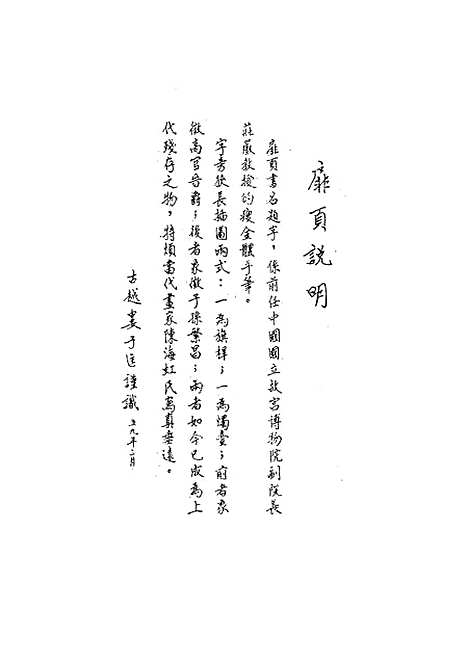 扉頁說明
扉頁書名題字，係前任中國國立故宮博物院副院長
莊嚴教授的瘦金體手筆。
字旁狹長插圖兩式：一為旗桿；一為燭臺；前者象
徵高官晉爵；後者象徵子孫繁昌；兩者如今已成為上
代殘存之物，特煩當代畫家陳海虹氏寫真垂遠。
古越婁子匡謹識 七九年二月